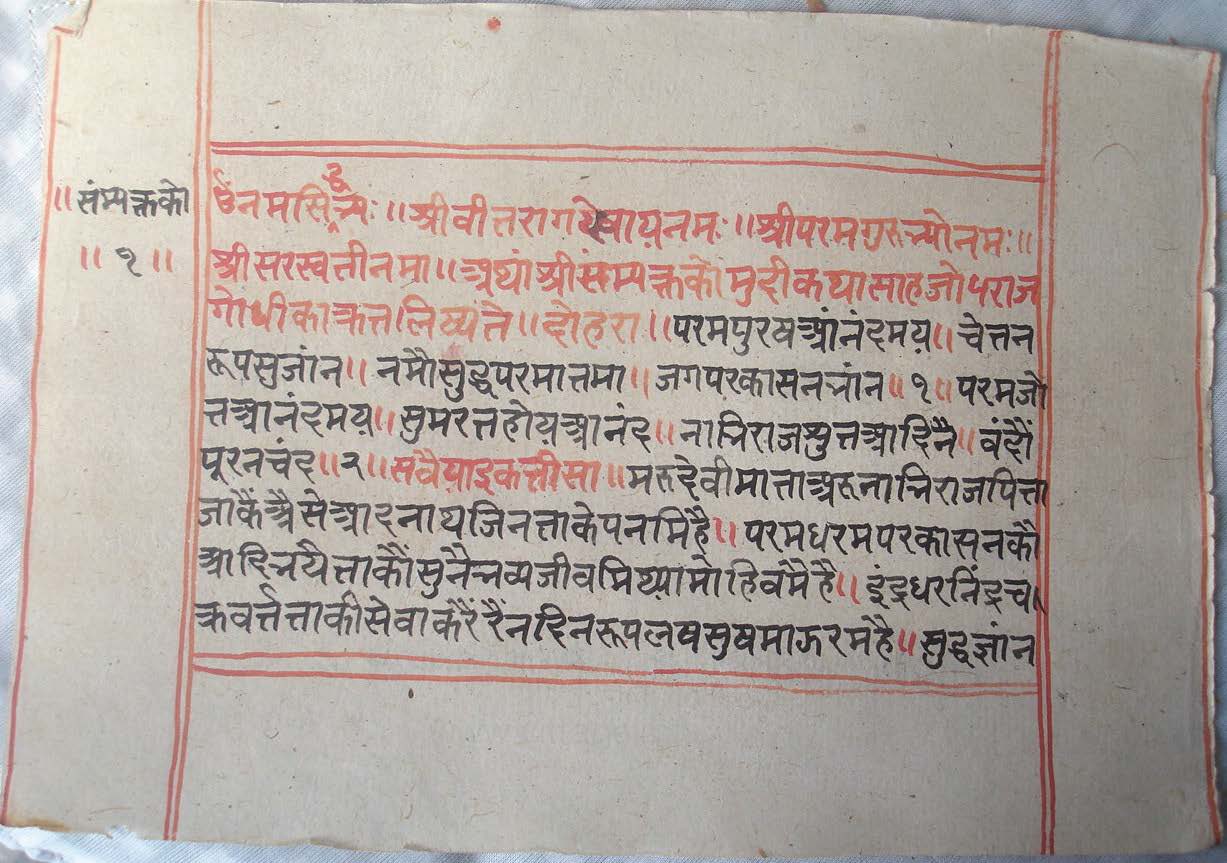 ॥ संम्यक्तकौ
॥ १ ॥
ॐनमसिद्धेभ्यः ॥ श्रीवीतरागदेवायनमः ॥ श्रीपरमगुरुभ्योनमः ॥
श्रीसरस्वतीनमा ॥ अथां श्रीसंम्यक्तकौमुदीकथासाहजोधराज
गोधीकाक्रतलिष्यंते ॥ दोहरा ॥ परमपुरषआंनंदमय ॥ चेतन
रूपसुजांन ॥ नमौसुद्धपरमातमा ॥ जगपरकासनभांन ॥ १ ॥ परमजो
तआनंदमय ॥ सुमरतहोयआनंद ॥ नाभिराजशुतआदिनै ॥ वंदौं
पूरनचंद ॥ २ ॥ सवैयाइकत्तीसा ॥ मरुदेवीमाताअरुनाभिराजपिता
जाकैंअैसेआदनाथजिनताकेपनमिहै ॥ परमधरमपरकासनकौ
आदिभयैताकौंसुनैभव्यजीवमिथ्यामोहिवमैहै ॥ इंद्रधरनिंद्रच
क्रवर्त्तताकीसेवाकरैंरैंनदिनरूपलषसुषमाऊरमहै ॥ सुद्धज्ञांन